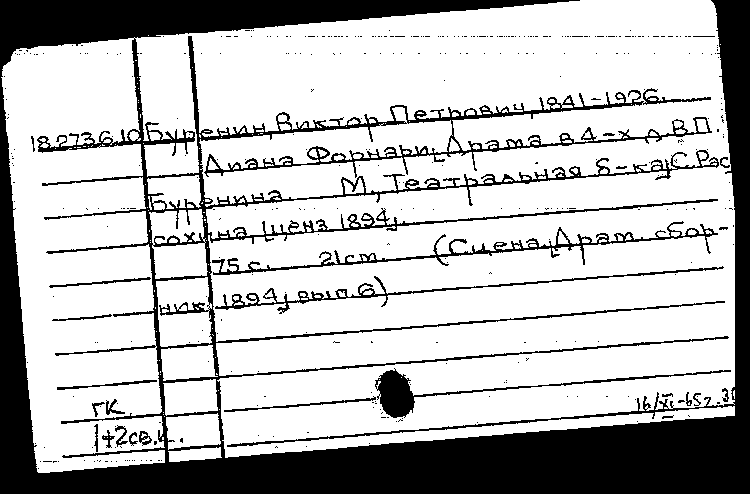 18.273.6.10 Буренин, Виктор Петрович, 1841-1926.
Диана Форнари. [Драма в 4-х д. В.П.
Буренина. М., Театральная б-ка] С. Рас
сохина, [ценз 1894].
75 с. 21 см. (Сцена. [Драм. сбор-
ник. 1894] вып. 6)
ГК.
1+2св.к.
16/XI-65 г.